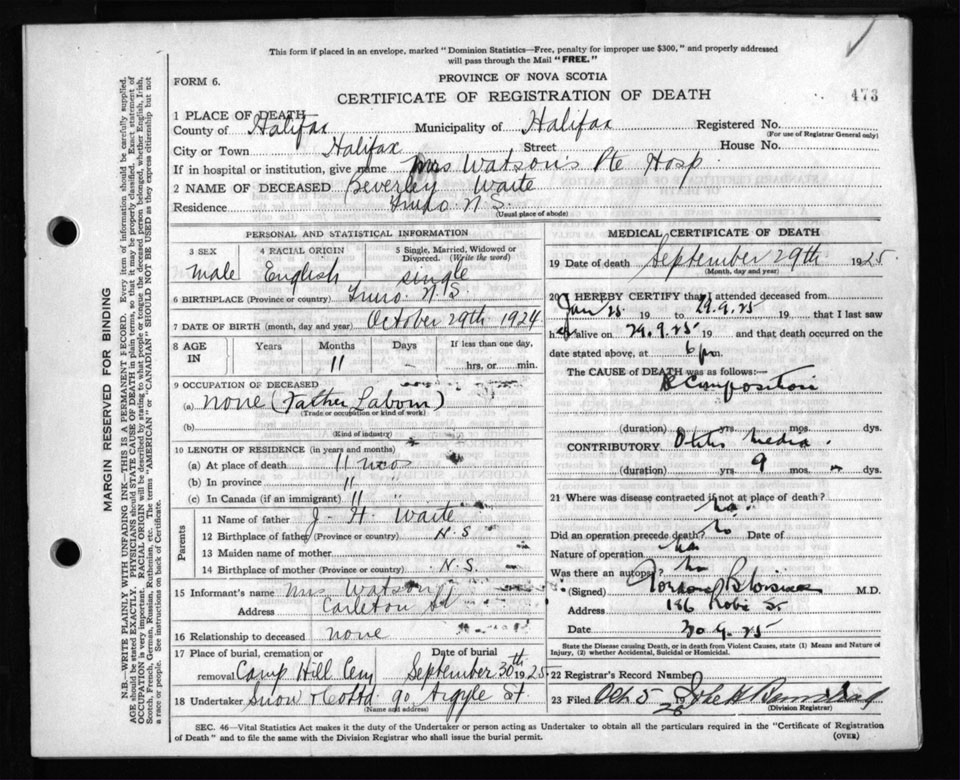 This form if placed in an envelope, marked "Dominion Statistics—Free, penalty for improper use $300," and properly addressed
will pass through the Mail "FREE."
FORM 6.
PROVINCE OF NOVA SCOTIA
CERTIFICATE OF REGISTRATION OF DEATH
473
1 PLACE OF DEATH
County of Halifax Municipality of Halifax Registered No.
(For use of Registrar General only)
City or Town Halifax Street House No.
If in hospital or institution, give name Mrs Watson's Pte Hosp.
2 NAME OF DECEASED Beverley Waite
Residence Truro. N.S.
(Usual place of abode)
PERSONAL AND STATISTICAL INFORMATION
3 SEX 4 RACIAL ORIGIN 5 Single, Married, Widowed or Divorced. (Write the word)
male English single
6 BIRTHPLACE (Province or country) Truro. N.S.
7 DATE OF BIRTH (month, day and year) October 29th 1924
8 AGE IN Years Months Days If less than one day,
11 hrs. or min.
9 OCCUPATION OF DECEASED
(a) none (Father Labour)
(Trade or occupation or kind of work)
(b)
(Kind of industry)
10 LENGTH OF RESIDENCE (in years and months)
(a) At place of death 11 mos
(b) In province 11 "
(c) In Canada (if an immigrant) 11 "
Parents
11 Name of father J. H. Waite
12 Birthplace of father (Province or country) N.S
13 Maiden name of mother
14 Birthplace of mother (Province or country) N.S.
15 Informant's name Mrs Watson
Address Carleton St
16 Relationship to deceased none
17 Place of burial, cremation or removal Camp Hill Cem
Date of burial September 30th 1925
18 Undertaker Snow & Co Ltd 90 Argyle St.
(Name and address)
MEDICAL CERTIFICATE OF DEATH
19 Date of death September 29th 1925
(Month, day and year)
20 I HEREBY CERTIFY that I attended deceased from
Jan 25 19 to 29.9.25 19 that I last saw
h alive on 29.9.25 19 and that death occurred on
date stated above, at 6 pm.
The CAUSE of DEATH was as follows:—
(duration) yrs. mos. dys.
CONTRIBUTORY Otitis Media.
(duration) yrs. 9 mos. dys.
21 Where was disease contracted if not at place of death?
Did an operation precede death? no Date of
Nature of operation
Was there an autopsy? no
(Signed) M.D.
Address 186 Robie St
Date 30.9.25
State the Disease causing Death, or in death from Violent Causes, state (1) Means and Nature of Injury, (2) whether Accidental, Suicidal or Homicidal.
22 Registrar's Record Number
23 Filed Oct 5 19 25
(Division Registrar)
SEC. 46—Vital Statistics Act makes it the duty of the Undertaker or person acting as Undertaker to obtain all the particulars required in the "Certificate of Registration
of Death" and to file the same with the Division Registrar who shall issue the burial permit.
(OVER)
MARGIN RESERVED FOR BINDING
N.B.—WRITE PLAINLY WITH UNFADING INK—THIS IS A PERMANENT RECORD. Every item of information should be carefully supplied.
AGE should be stated EXACTLY. PHYSICIANS should STATE CAUSE OF DEATH in plain terms, so that it may be properly classified. Exact statement of
OCCUPATION is very important. RACIAL ORIGIN will be described by stating to what people or tongue the deceased person belonged, whether English, Irish,
Scotch, French, German, Russian, Ruthenian, etc. The terms "AMERICAN" or "CANADIAN" SHOULD NOT BE USED as they express citizenship but not
a race or people. See instructions on back of Certificate.